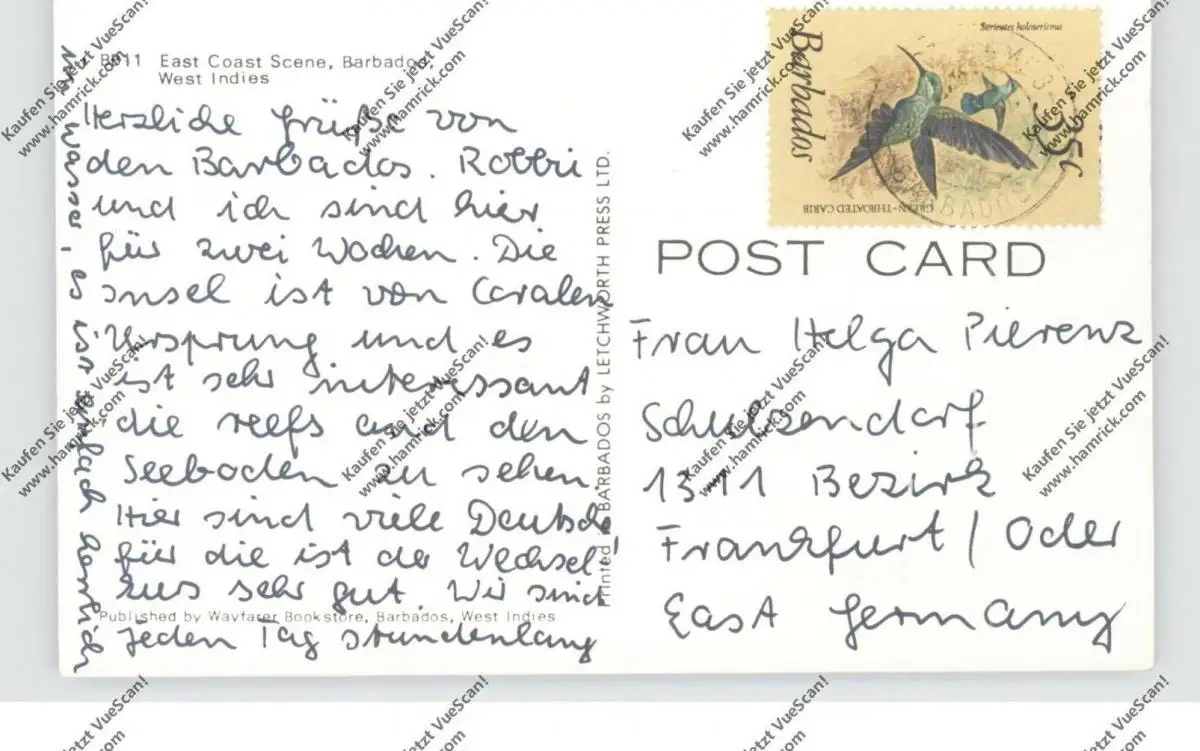 B911 East Coast Scene, Barbados,
West Indies
Herzliche Grüße von
den Barbados. Robbi
und ich sind hier
für zwei Wochen. Die
Insel ist von Coralen
Ursprung und es
ist sehr interessant
die reefs and den
Seeboden zu sehen.
Hier sind viele Deutsche
für die ist der Wechsel
kurs sehr gut. Wir sind
jeden Tag stundenlang
im Wasser, es ist einfach herrlich
Published by Wayfarer Bookstore, Barbados, West Indies
Printed in BARBADOS by LETCHWORTH PRESS LTD.
Sericotes holosericeus
Barbados
35c
GREEN-THROATED CARIB
BARBADOS
POST CARD
Frau Helga Pierenz
Schulzendorf
1311 Bezirk
Frankfurt / Oder
East Germany
Kaufen Sie jetzt VueScan!
www.hamrick.com